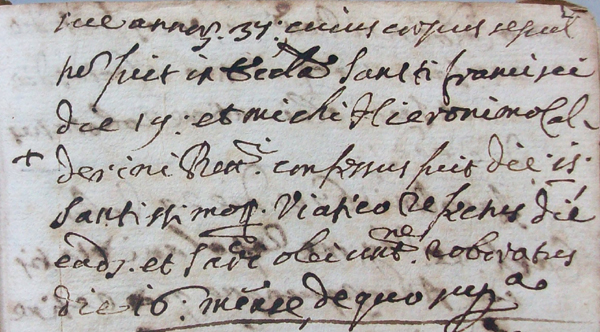 sue annoʒ. 37: cuius corpus sepul
tuʒ fuit in Eccłā Sancti francisci
die 19: et michi Hieronimo Cal-
+ derini Rettʳⁱ. confessus fuit die 15:
Santissimoqʒ. Viatico refectus diē
eadʒ. et sacⁱ olei untⁿᵉ. roboratus
die 16: mense, de quo supʳᵃ